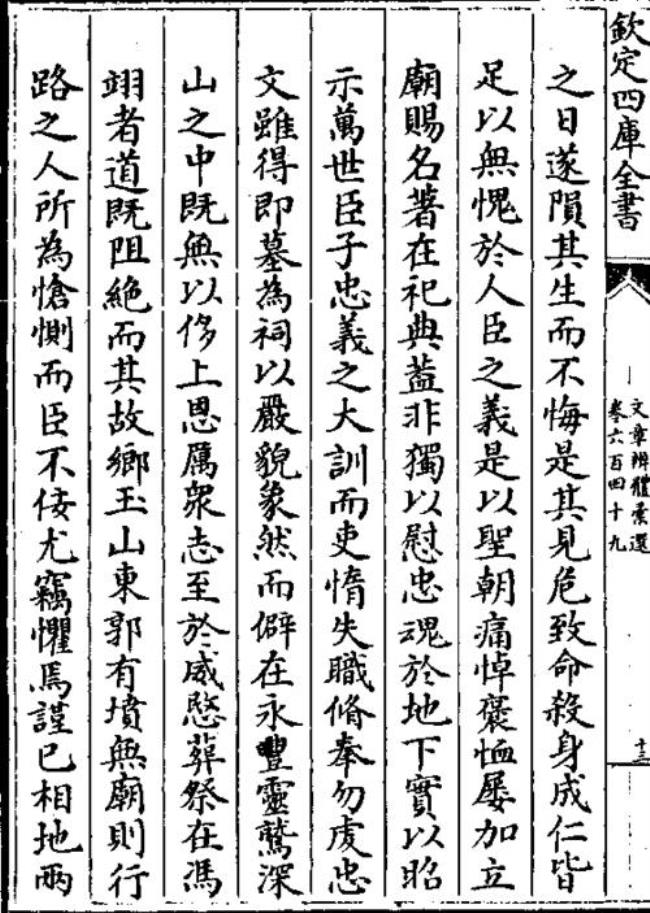 欽定四庫全書
文章辨體彙選
卷六百四十九
十三
之日遂隕其生而不悔是其見危致命殺身成仁皆
足以無愧於人臣之義是以聖朝痛悼襃恤屡加立
廟賜名著在祀典葢非獨以慰忠魂於地下實以昭
示萬世臣子忠義之大訓而吏惰失職脩奉勿䖍忠
文雖得即墓為祠以嚴貌象然而僻在永豐靈鷲深
山之中既無以侈上恩厲衆志至於威愍葬祭在馮
翊者道既阻絶而其故鄉玉山東郭有墳無廟則行
路之人所為愴惻而臣不佞尤竊懼焉謹已相地兩